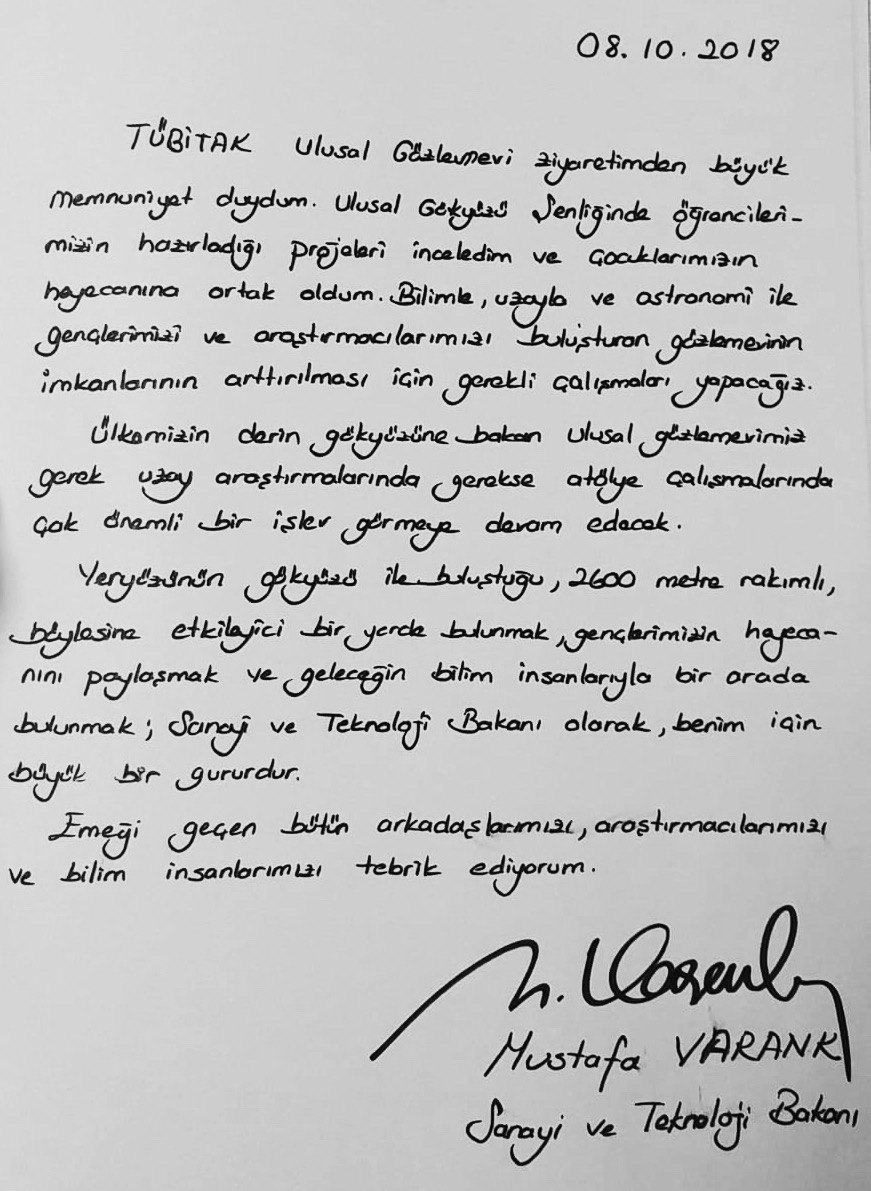 08.10.2018
TÜBİTAK Ulusal Gözlemevi ziyaretimden büyük
memnuniyet duydum. Ulusal Gökyüzü Şenliğinde öğrencileri-
mizin hazırladığı projeleri inceledim ve çocuklarımızın
heyecanına ortak oldum. Bilimle, uzayla ve astronomi ile
gençlerimizi ve araştırmacılarımızı buluşturan gözlemevinin
imkanlarının arttırılması için gerekli çalışmaları yapacağız.
Ülkemizin derin gökyüzüne bakan ulusal gözlemevimiz
gerek uzay araştırmalarında gerekse atölye çalışmalarında
çok önemli bir işlev görmeye devam edecek.
Yeryüzünün gökyüzü ile buluştuğu, 2600 metre rakımlı,
böylesine etkileyici bir yerde bulunmak, gençlerimizin heyeca-
nını paylaşmak ve geleceğin bilim insanlarıyla bir arada
bulunmak; Sanayi ve Teknoloji Bakanı olarak, benim için
büyük bir gururdur.
Emeği geçen bütün arkadaşlarımızı, araştırmacılarımızı
ve bilim insanlarımızı tebrik ediyorum.
M. Varank
Mustafa VARANK
Sanayi ve Teknoloji Bakanı